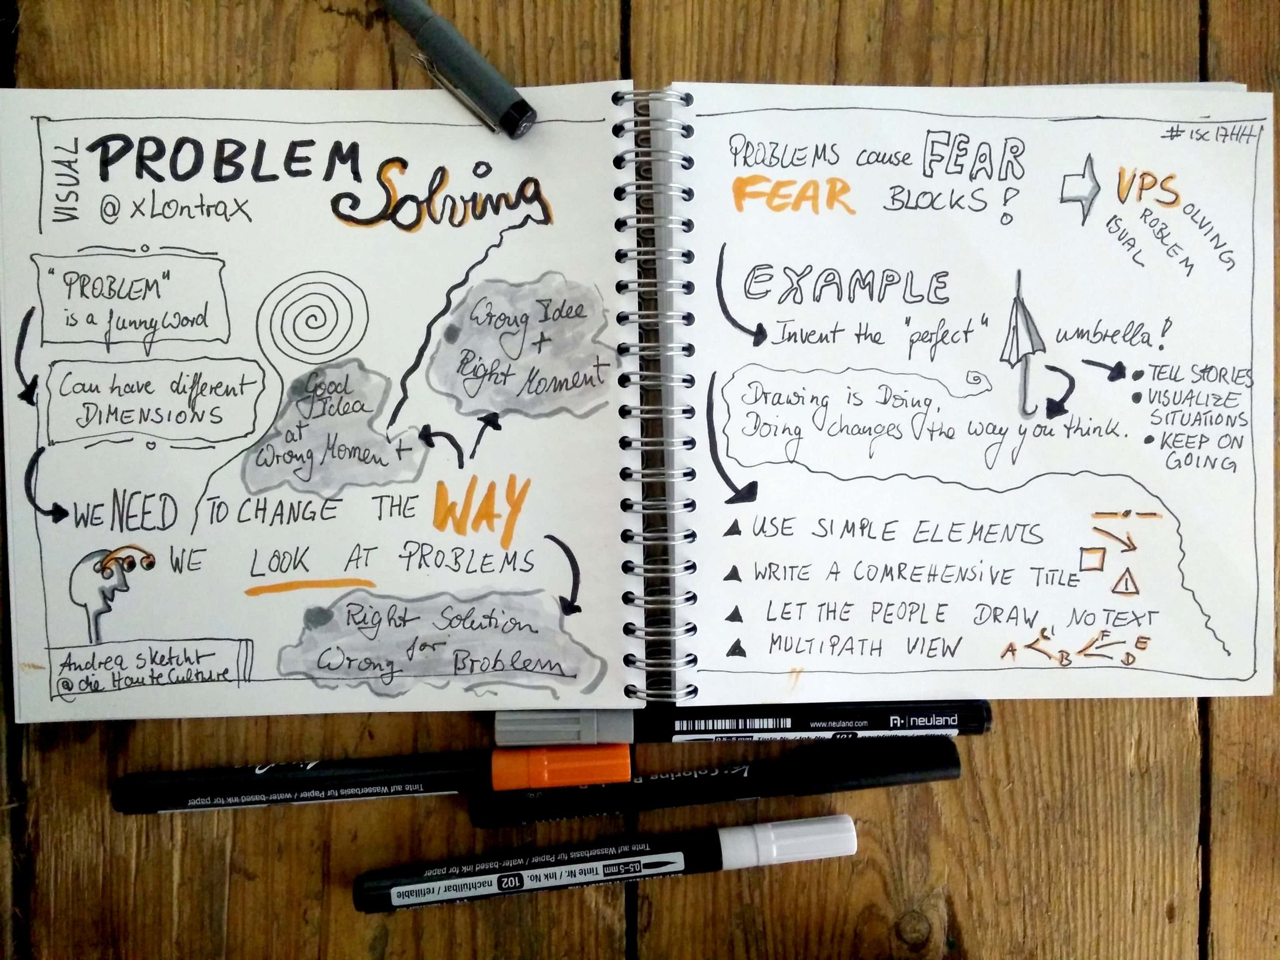 VISUAL
PROBLEM
Solving
@xLontrax
"PROBLEM"
is a funny Word
Can have different
DIMENSIONS
Good
Idea
at
Wrong Moment
Wrong Idee
+
Right Moment
WE NEED TO CHANGE THE WAY
WE LOOK AT PROBLEMS
Right Solution
for
Wrong Broblem
Andrea sketcht
@die HauteCulture
#isc17HH
PROBLEMS cause FEAR
FEAR BLOCKS!
VPSOLVING
ROBLEM
ISUAL
EXAMPLE
Invent the "perfect" umbrella!
TELL STORIES
VISUALIZE
SITUATIONS
KEEP ON
GOING
Drawing is Doing,
Doing changes the way you think.
USE SIMPLE ELEMENTS
WRITE A COMREHENSIVE TITLE
!
LET THE PEOPLE DRAW, NO TEXT
MULTIPATH VIEW
A C B F E D
www.neuland.com
neuland
Tinte auf Wasserbasis für Papier / water-based ink for paper
Tinte auf Wasserbasis für Papier / water-based ink for paper
0.5–5 mm Tinte Nr. / Ink No. 102 nachfüllbar / refillable